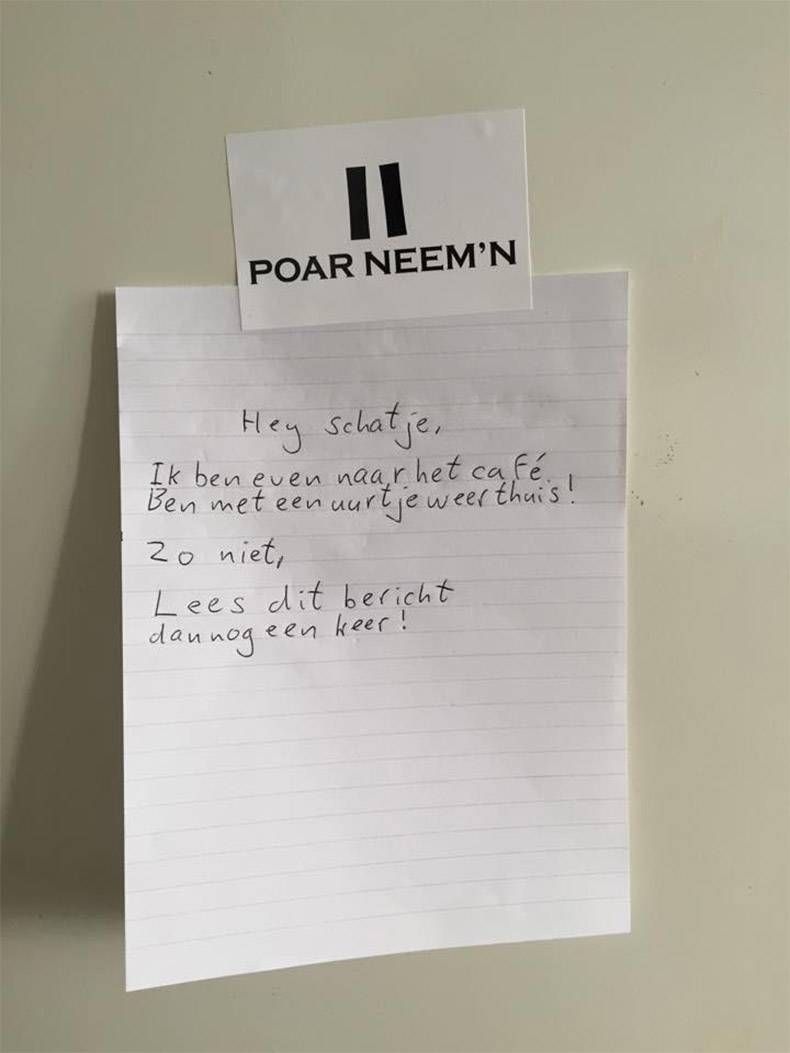 POAR NEEM'N
Hey schatje,
Ik ben even naar het café.
Ben met een uurtje weer thuis!
Zo niet,
Lees dit bericht
dan nog een keer!